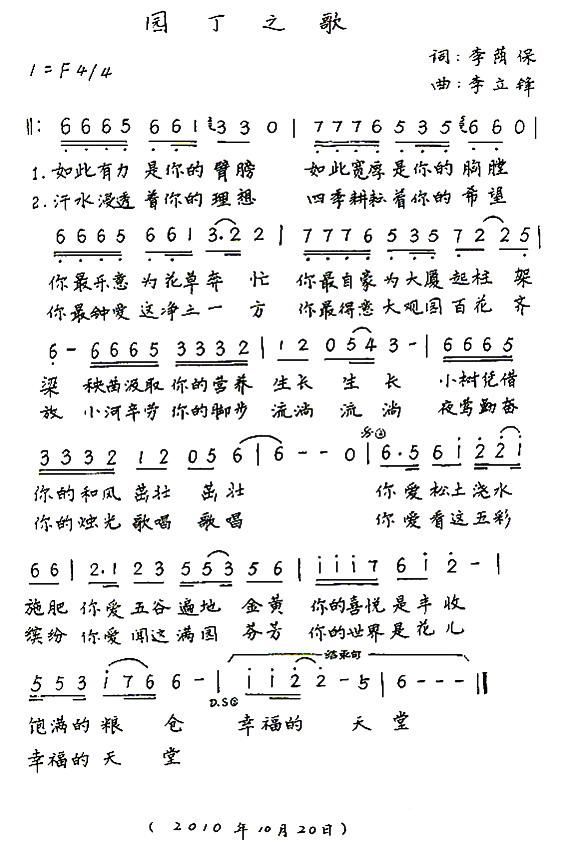 园丁之歌
词:李荫保
1=F4/4
曲:李立锋
‖: 6 6 6 5 6 6 1 3 3 0 | 7 7 7 6 5 3 5 6 6 0 |
1.如此有力 是你的 臂膀 如此宽厚 是你的 胸膛
2.汗水浸透 着你的 理想 四季耕耘 着你的 希望
6 6 6 5 6 6 1 3·2 2 | 7 7 7 6 5 3 5 7 2 2 5 |
你最乐意 为花草奔 忙 你最自豪 为大厦 起柱 架
你最钟爱 这净土一 方 你最得意 大观园 百花 齐
6 - 6 6 6 5 3 3 3 2 | 1 2 0 5 4 3 - | 6 6 6 5
梁 秧苗汲取 你的营养 生长 生 长 小树凭借
放 小河辛劳 你的脚步 流淌 流 淌 夜莺勤奋
3 3 3 2 1 2 0 5 6 | 6 - - 0 | 6·5 6 i 2 2 i
你的和风 茁壮 茁壮 你 爱 松土 浇水
你的烛光 歌唱 歌唱 你 爱 看这 五彩
6 6 | 2·1 2 3 5 5 3 5 6 | i i i 7 6 i 2 - |
施肥 你爱 五谷 遍地 金黄 你的喜悦 是丰收
缤纷 你爱 闻这 满园 芬芳 你的世界 是花儿
结束句
5 5 3 i 7 6 6 - | i i 2 2 - 5 | 6 - - - ‖
D.S
饱满的 粮 仓 幸福的 天 堂
幸福的 天 堂
(2010年10月20日)